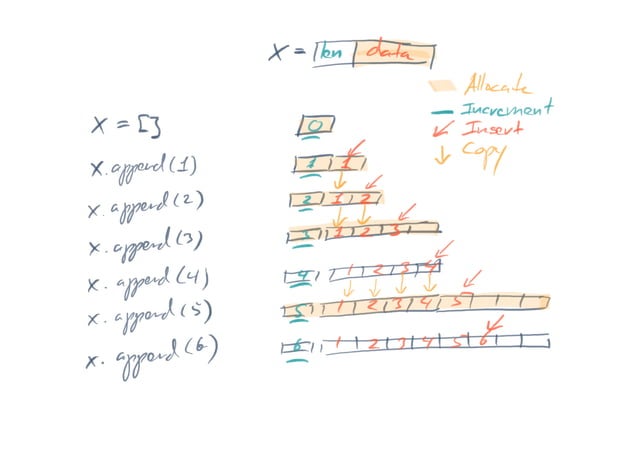 X = len data
Allocate
Increment
Insert
Copy
X = []
0
x.append(1)
1 1
x.append(2)
2 1 2
x.append(3)
3 1 2 3
x.append(4)
4 1 2 3 4
x.append(5)
5 1 2 3 4 5
x.append(6)
6 1 2 3 4 5 6